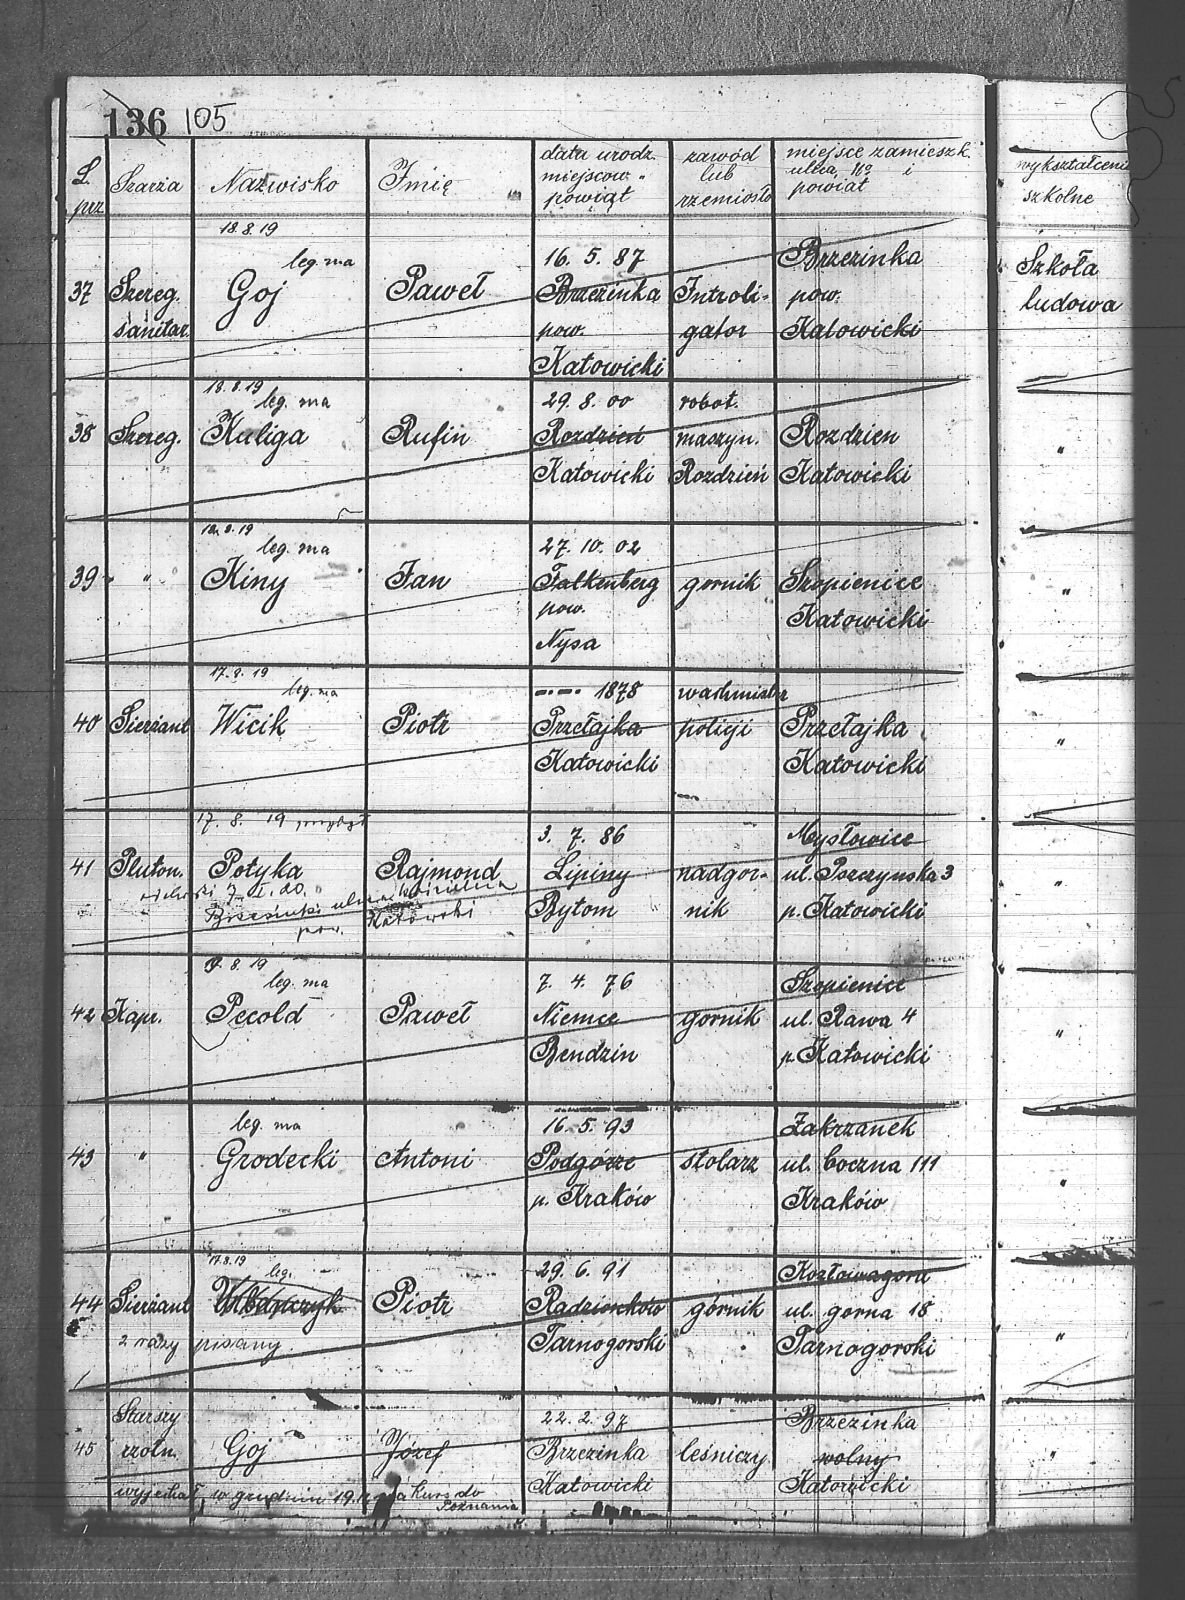 136 105
L. prz
Szarża
Nazwisko
Imię
data urodz.
miejscow.
powiat
zawód
lub
rzemiosło
miejsce zamieszk.
ulica, No i
powiat
wykształcenie
szkolne
18.8.19
leg. ma
37
Szereg.
sanitar.
Goj
Paweł
16. 5. 87
Brzezinka
pow.
Katowicki
Introli-
gator
Brzezinka
pow.
Katowicki
Szkoła
ludowa
18.8.19
leg. ma
38
Szereg.
Kuliga
Rufin
29. 8. 00
Rozdzień
Katowicki
robot.
maszyn.
Rozdzień
Rozdzien
Katowicki
"
18.8.19
leg. ma
39 "
Kiny
Jan
27. 10. 02
Falkenberg
pow.
Nysa
gornik
Szopienice
Katowicki
"
17.9.19
leg. ma
40
Sierżant
Wicik
Piotr
-.-. 1878
Przełajka
Katowicki
wachmister
policji
Przełajka
Katowicki
"
17. 8. 19
41
Pluton.
Potyka
Rajmond
3. 7. 86
Lipiny
Bytom
nadgór-
nik
Mysłowice
ul. Pszczynska 3
p. Katowicki
"
Katowski
pow.
8. 19
leg. ma
42
Kapr.
Pecold
Paweł
7. 4. 76
Niemce
Bendzin
gornik
Szopienice
ul. Rawa 4
p. Katowicki
"
leg. ma
43
"
Grodecki
Antoni
16. 5. 93
Podgórze
p. Kraków
stolarz
Zakrzanek
ul. boczna 111
Kraków
"
17.8.19
leg.
44
Sierżant
Urbanczyk
Piotr
29. 6. 91
Radzionków
Tarnogorski
górnik
Kozłowagora
ul. gorna 18
Tarnogorski
"
2 razy pisany.
45
Starszy
rzołn.
Goj
Józef
22. 2. 97
Brzezinka
Katowicki
leśniczy
Brzezinka
wolny
Katowicki
"
wyjechał w grudniu 19. na kurs do
Poznania